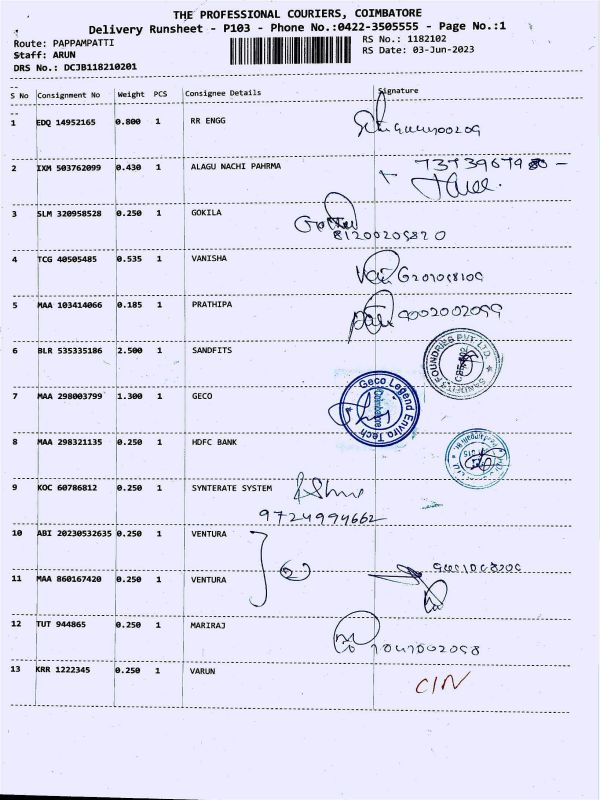 THE PROFESSIONAL COURIERS, COIMBATORE
Delivery Runsheet - P103 - Phone No.:0422-3505555 - Page No.:1
Route: PAPPAMPATTI
RS No.: 1182102
Staff: ARUN
RS Date: 03-Jun-2023
DRS No.: DCJB118210201
S No Consignment No Weight PCS Consignee Details Signature
1 EDQ 14952165 0.800 1 RR ENGG
2 IXM 503762099 0.430 1 ALAGU NACHI PAHRMA
3 SLM 320958528 0.250 1 GOKILA
4 TCG 40505485 0.535 1 VANISHA
5 MAA 103414066 0.185 1 PRATHIPA
6 BLR 535335186 2.500 1 SANDFITS
7 MAA 298003799 1.300 1 GECO
Geco Legend Enviro Tech
Coimbatore
8 MAA 298321135 0.250 1 HDFC BANK
9 KOC 60786812 0.250 1 SYNTERATE SYSTEM
9724994662
10 ABI 20230532635 0.250 1 VENTURA
11 MAA 860167420 0.250 1 VENTURA
12 TUT 944865 0.250 1 MARIRAJ
13 KRR 1222345 0.250 1 VARUN
C/N